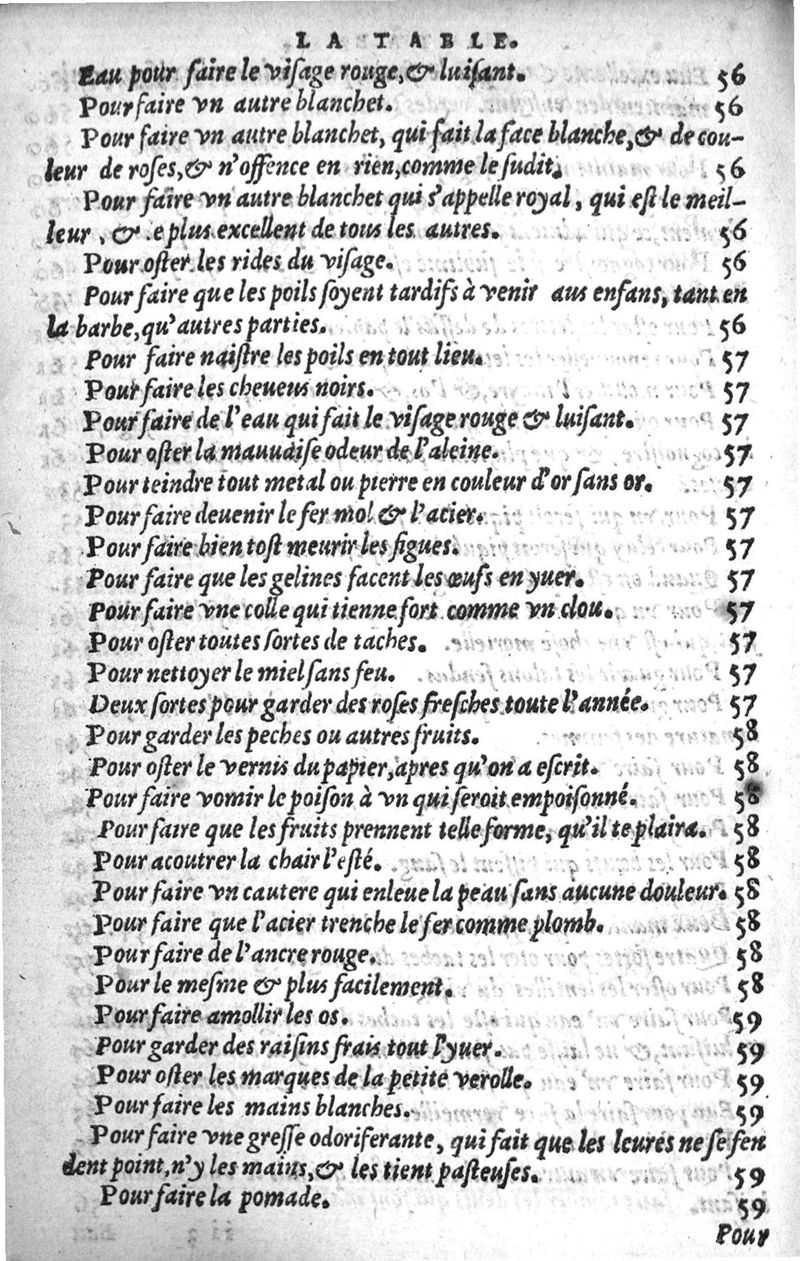 LA TABLE.
Eau pour faire le viſage rouge, & luiſant. 56
Pour faire vn autre blanchet. 56
Pour faire vn autre blanchet, qui fait la face blanche, & de cou-
leur de roſes, & n'offence en rien, comme le ſudit. 56
Pour faire vn autre blanchet qui s'appelle royal, qui eſt le meil-
leur, & e plus excellent de tous les autres. 56
Pour oſter les rides du viſage. 56
Pour faire que les poils ſoyent tardifs à venir aus enfans, tant en
la barbe, qu'autres parties. 56
Pour faire naiſtre les poils en tout lieu. 57
Pour faire les cheueus noirs. 57
Pour faire de l'eau qui fait le viſage rouge & luiſant. 57
Pour oſter la mauuaiſe odeur de l'aleine. 57
Pour teindre tout metal ou pierre en couleur d'or ſans or. 57
Pour faire deuenir le fer mol & l'acier. 57
Pour faire bien toſt meurir les figues. 57
Pour faire que les gelines facent les œufs en yuer. 57
Pour faire vne colle qui tienne fort comme vn clou. 57
Pour oſter toutes ſortes de taches. 57
Pour nettoyer le miel ſans feu. 57
Deux ſortes pour garder des roſes freſches toute l'année. 57
Pour garder les peches ou autres fruits. 58
Pour oſter le vernis du papier, apres qu'on a eſcrit. 58
Pour faire vomir le poiſon à vn qui ſeroit empoiſonné. 58
Pour faire que les fruits prennent telle forme, qu'il te plaira. 58
Pour acoutrer la chair l'eſté. 58
Pour faire vn cautere qui enleue la peau ſans aucune douleur. 58
Pour faire que l'acier trenche le fer comme plomb. 58
Pour faire de l'ancre rouge. 58
Pour le meſme & plus facilement. 58
Pour faire amollir les os. 59
Pour garder des raiſins frais tout l'yuer. 59
Pour oſter les marques de la petite verolle. 59
Pour faire les mains blanches. 59
Pour faire vne greſſe odoriferante, qui fait que les leures ne ſe fen
dent point, n'y les mains, & les tient paſteuſes. 59
Pour faire la pomade. 59
Pour